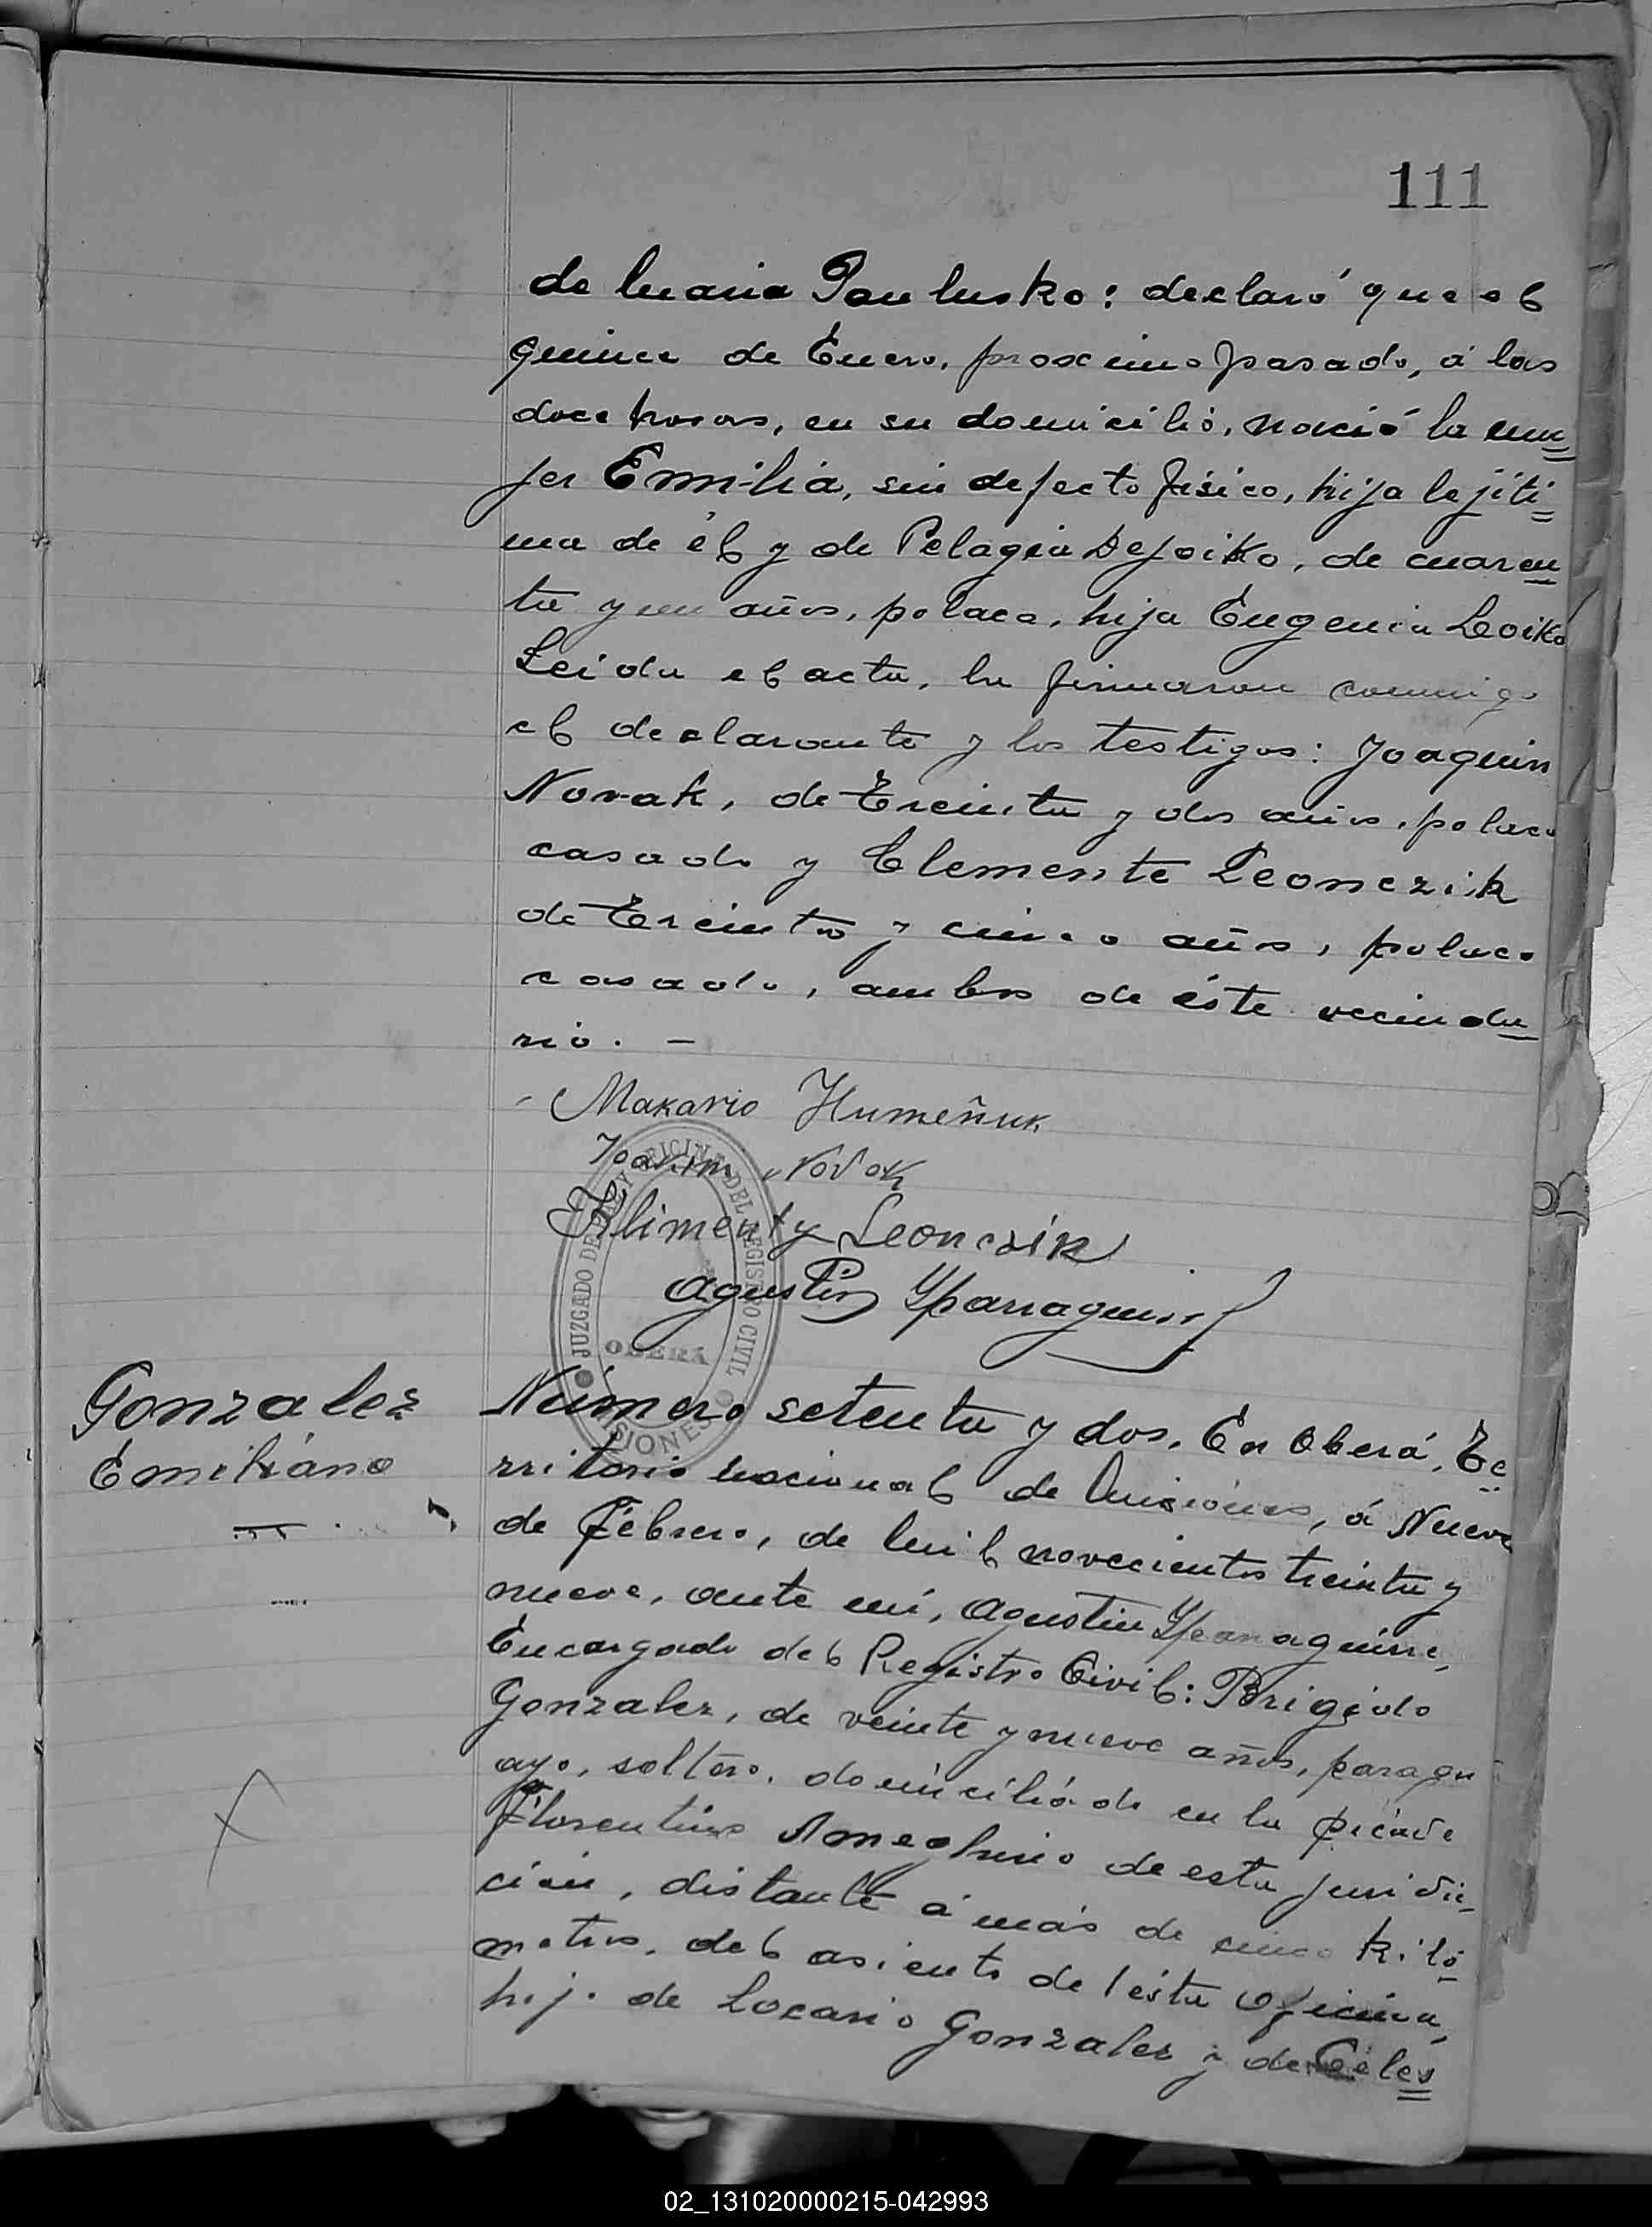 111
de Maria Paulusko: declaró que el
quince de Enero, proximo pasado, á las
doce horas, en su domicilio, nació la mu=
jer Emilia, sin defecto fisico, hija lejiti=
ma de él y de Pelagia Dejoiko, de cuaren
ta y un años, polaca, hija Eugenia Leoiko
Leida el acta, la firmaron conmigo
el declarante y los testigos: Joaquin
Novak, de treinta y dos años, polaco
casado y Clemente Leonczik
de treinta y cinco años, polaco
casado, ambos de éste vecinda
rio. –
Makario Humeñuk
Joakim Novak
Klimenty Leonczik
Agustin Yparraguirre
JUZGADO DE PAZ Y OFICINA DEL REGISTRO CIVIL
OBERÁ
MISIONES
Gonzalez
Emiliano
Número setenta y dos. En Oberá, Te
rritorio nacional de Misiones, á Nueve
de Febrero, de mil novecientos treinta y
nueve, ante mi, Agustin Yparraguirre,
Encargado del Registro Civil: Brigido
Gonzalez, de veinte y nueve años, paragu
ayo, soltero, domiciliado en la picada
Florentino Ameghino de esta juridic
ción, distante á más de cinco kiló
metros, del asiento de ésta Oficina,
hijo de Locario Gonzalez y de Celes
02_131020000215-042993